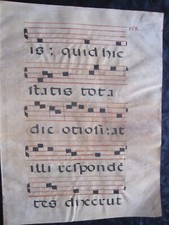 is: quid hic
statis tota
die otiosi: at
illi respondē
tes dixerūt